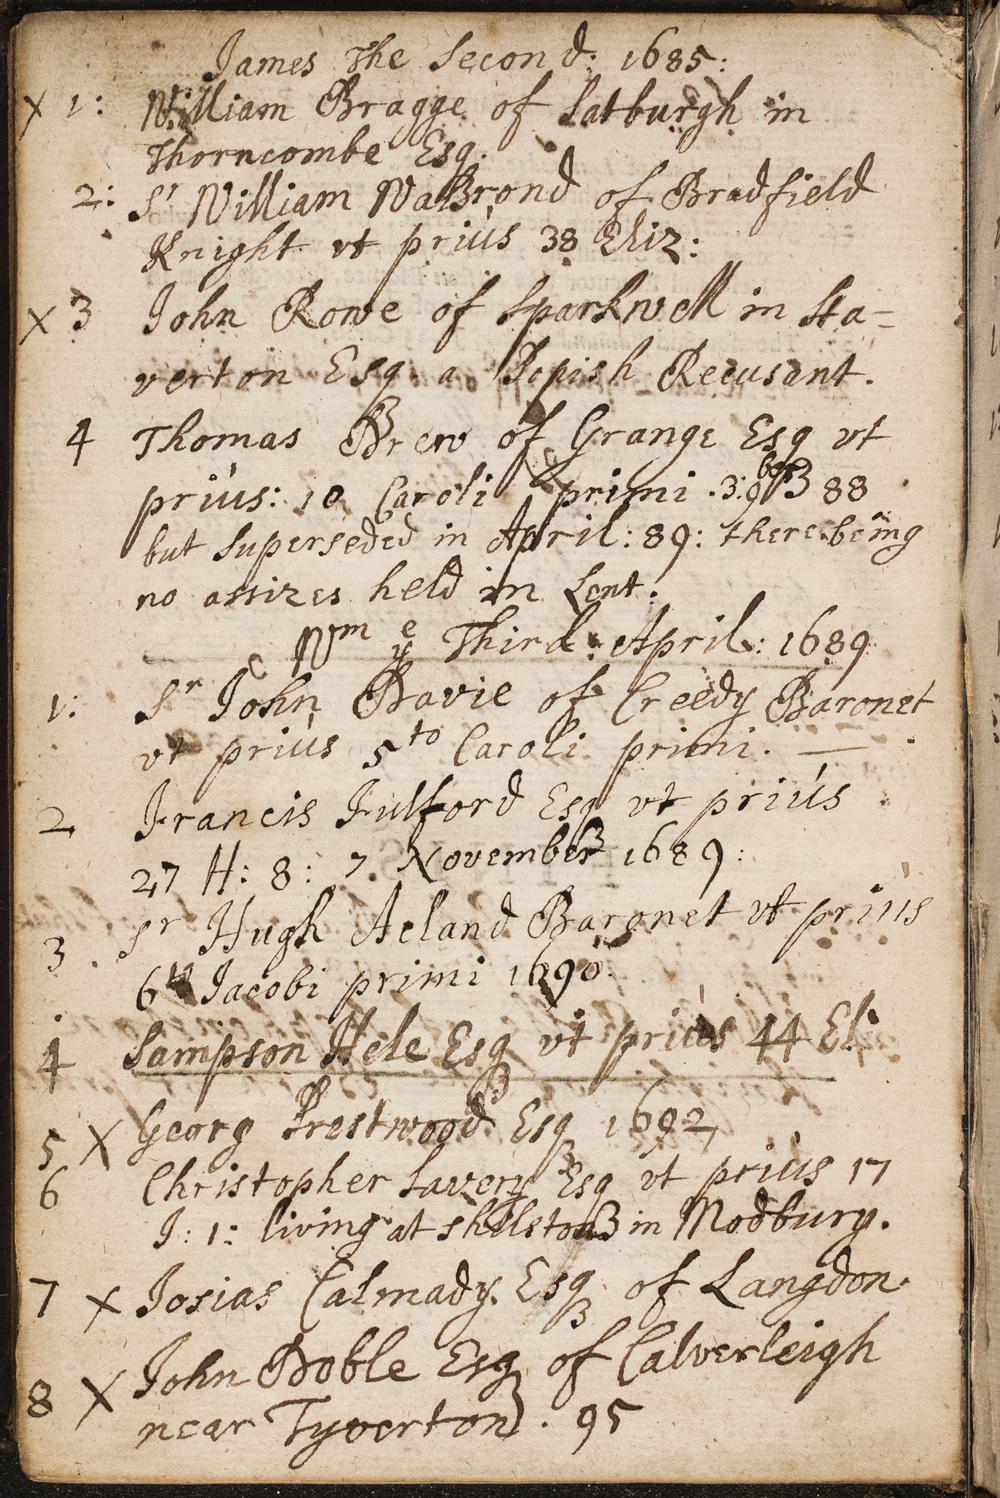 James the Second: 1685:
x 1: William Bragge of Satburgh in
Thorncombe Esq.
2: Sr William Walrond of Bradfield
Knight vt prius 38 Eliz:
x 3 John Rowe of Sparkwell in Sta=
verton Esq a Popish Recusant.
4 Thomas Drew of Grange Esq vt
prius: 10 Caroli primi .3: 9ber 88
but Superseded in April: 89: there being
no assizes held in Lent.
Wm ye Third April: 1689
1: Sr John Davie of Creedy Baronet
vt prius 5to Caroli primi. —
2 Francis Fulford Esq vt prius
27 H: 8: 7. November 1689:
3 Sr Hugh Acland Baronet vt prius
6to Jacobi primi 1690.
4 Sampson Hele Esq vt prius 44 El:
5 x Georg Prestwood Esq 1692
6 Christopher Savery Esq vt prius 17
J: 1: living at Shilston in Modbury.
7 x Josias Calmady. Esq of Langdon.
8 x John Doble Esq of Calverleigh
near Tyverton. 95